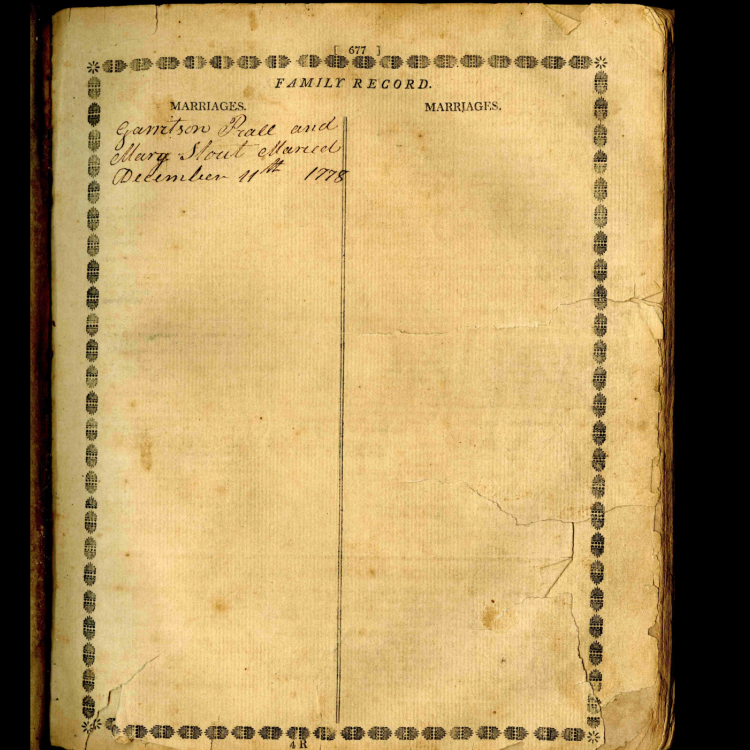 [ 677 ]
FAMILY RECORD.
MARRIAGES.
Garritson Prall and
Mary Stout Maried
December 11th 1778
MARRIAGES.
4 R